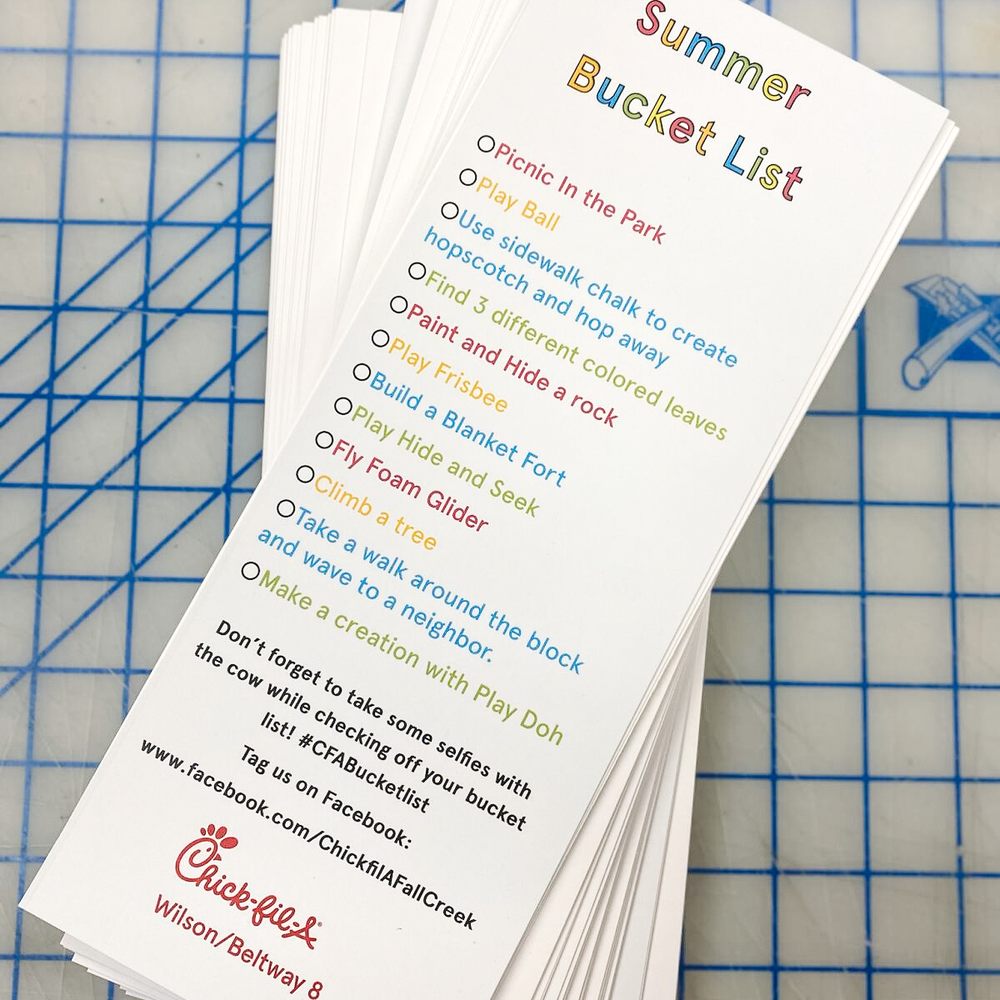 Summer
Bucket List
Picnic In the Park
Play Ball
Use sidewalk chalk to create
hopscotch and hop away
Find 3 different colored leaves
Paint and Hide a rock
Play Frisbee
Build a Blanket Fort
Play Hide and Seek
Fly Foam Glider
Climb a tree
Take a walk around the block
and wave to a neighbor.
Make a creation with Play Doh
Don't forget to take some selfies with
the cow while checking off your bucket
list! #CFABucketlist
Tag us on Facebook:
www.facebook.com/ChickfilAFallCreek
Chick-fil-A®
Wilson/Beltway 8